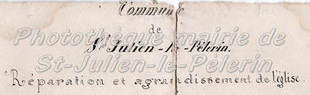 Commune
de
St Julien-le-Pélerin.
Réparation et agrandissement de l'église.
Photothèque mairie de
St-Julien-le-Pèlerin